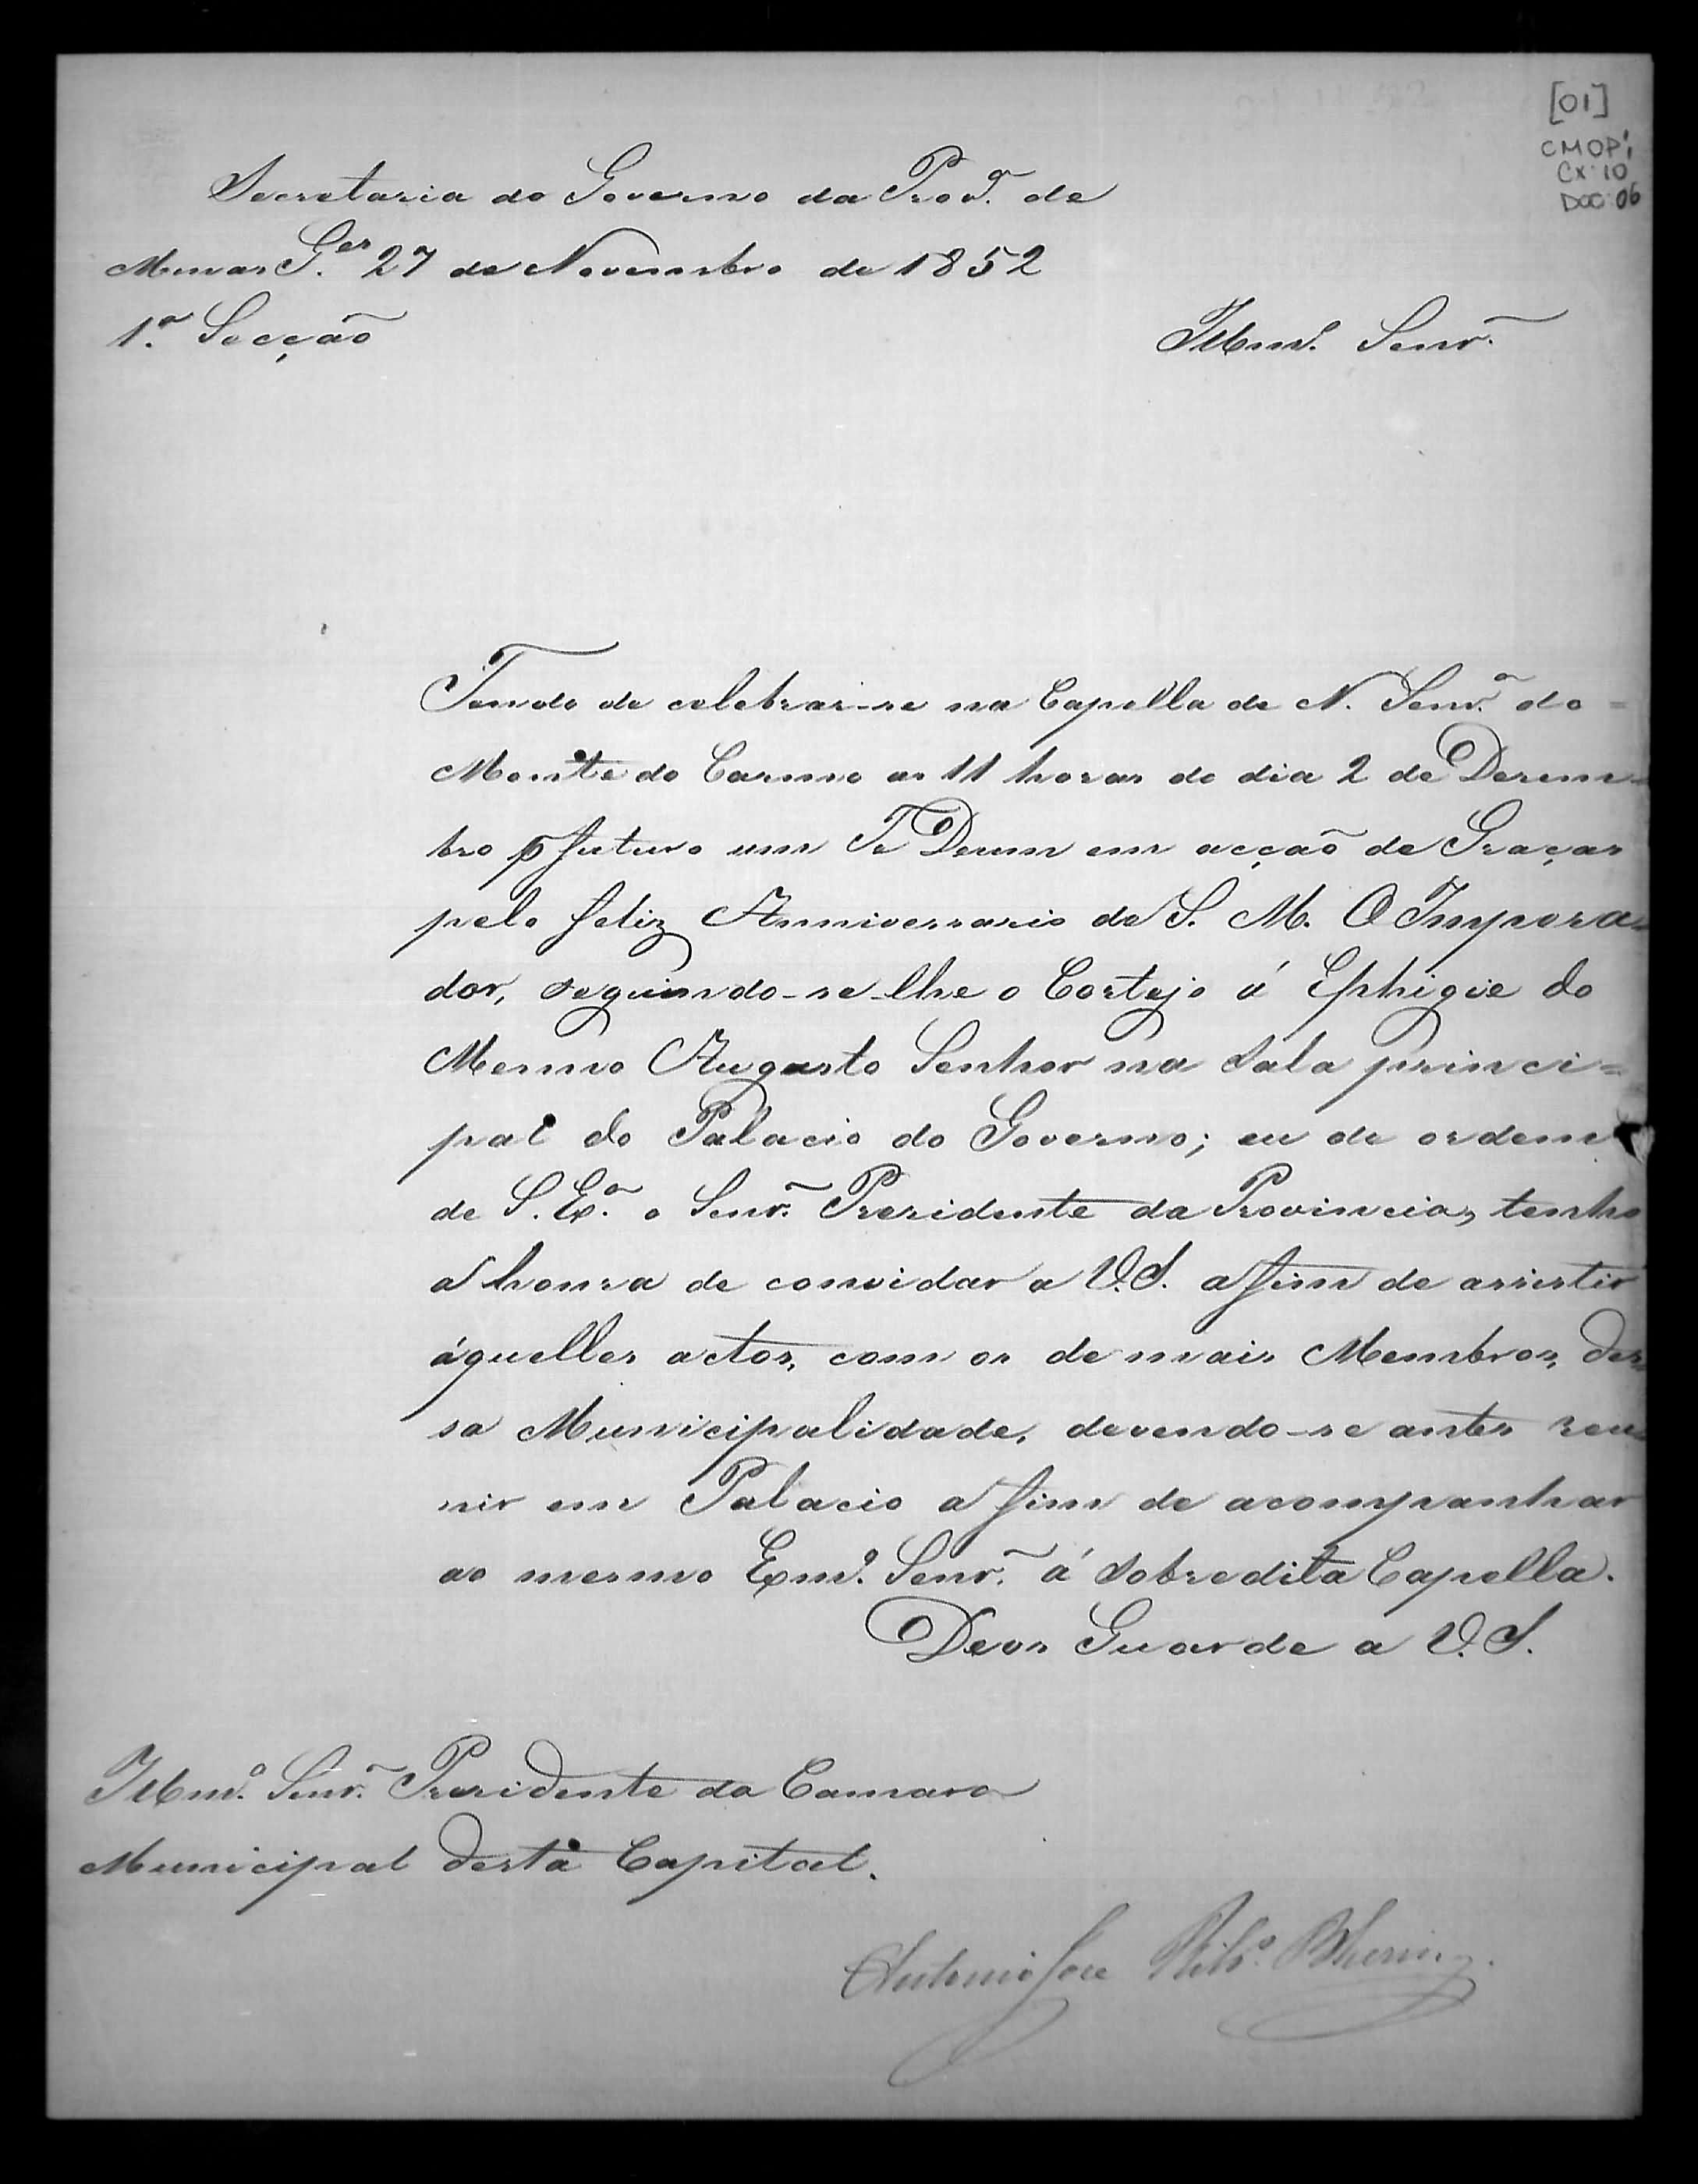 [01]
CMOP;
CX: 10
DOC: 06
Secretaria do Governo da Prov.ª de
Minas G.es 27 de Novembro de 1852
1.ª Secção
Illm.º Senr.
Tendo de celebrar-se na Capella de N. Senr.ª do
Monte do Carmo as 11 horas do dia 2 de Dezem-
bro p futuro um Te Deum em acção de Graças
pelo feliz Anniversario de S. M. O Impera-
dor, seguindo-se-lhe o Cortejo á Ephigie do
Mesmo Augusto Senhor na Sala princi=
pal do Palacio do Governo; eu de ordem
de S. Ex.ª o Senr. Presidente da Provincia, tenho
a honra de convidar a V. S. a fim de assistir
áquelles actos, com os de mais Membros, des-
sa Municipalidade, devendo-se antes reu-
nir em Palacio a fim de acompanhar
ao mesmo Exm.º Senr. á Sobredita Capella.
Deos Guarde a V. S.
Illm.º Senr. Presidente da Camara
Municipal desta Capital.
Antonio Jose Rib.º Bhering.